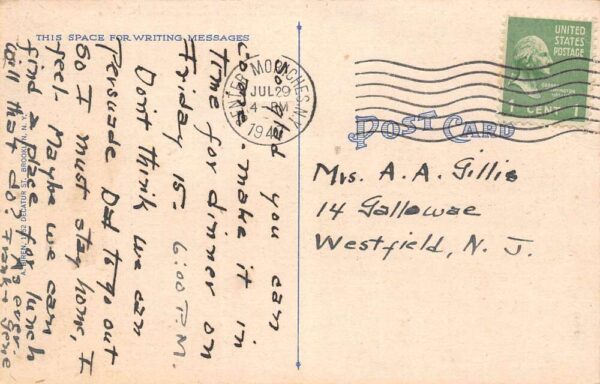 THIS SPACE FOR WRITING MESSAGES
So glad you can
come - make it in
time for dinner on
Friday 15. 6:00 P.M.
Don't think we can
persuade Dad to go out
So I must stay home, I
feel. Maybe we can
find a place for lunch
Will that do? As ever.
Frank + Gene
BROOKLYN, N. Y.
CENTER MORICHES N.Y.
JUL 29
4 - PM
UNITED
STATES
POSTAGE
1 CENT 1
POST CARD
Mrs. A. A. Gillis
14 Gallowae
Westfield, N. J.